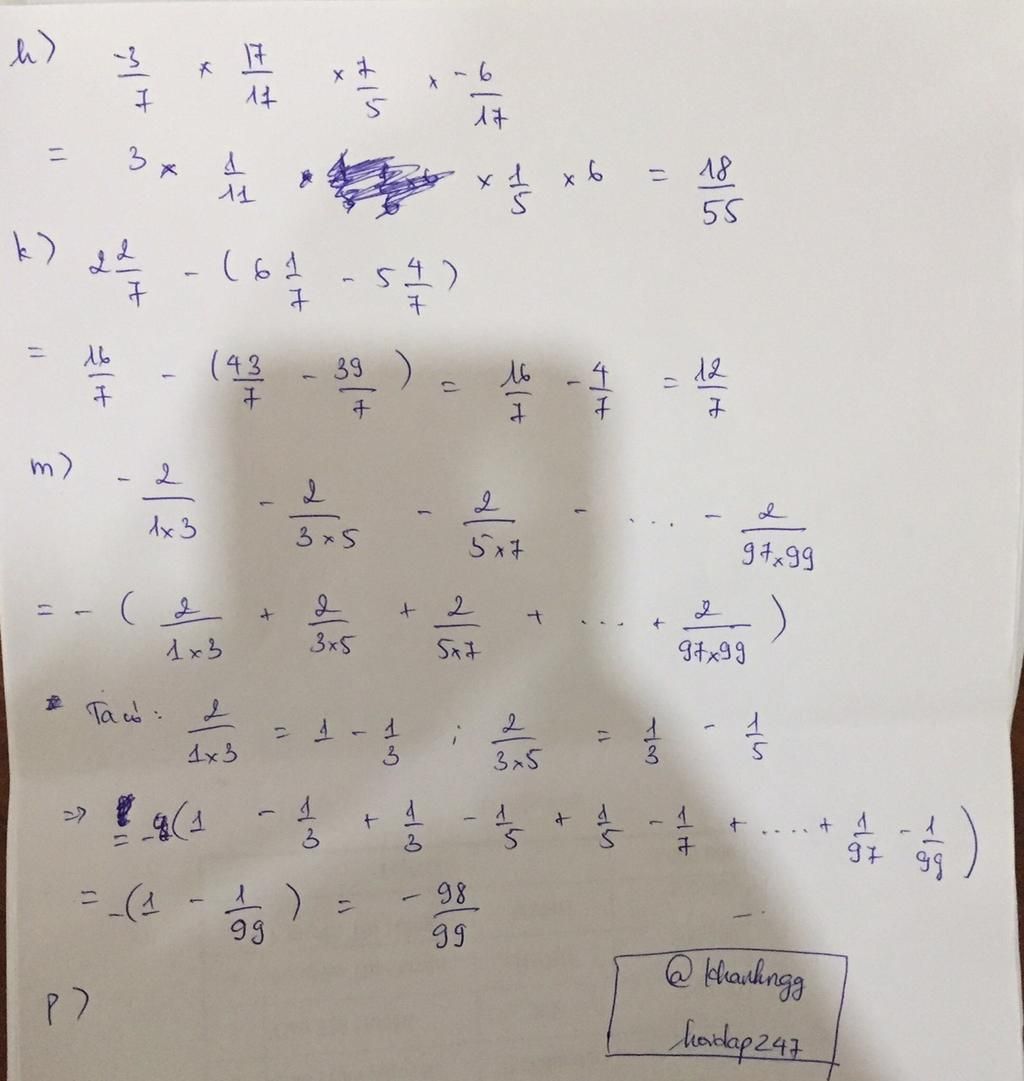 h) -3/7 × 17/11 × 7/5 × -6/17
= 3 × 1/11 × 1/5 × 6 = 18/55
k) 2 2/7 - (6 1/7 - 5 4/7)
= 16/7 - (43/7 - 39/7) = 16/7 - 4/7 = 12/7
m) - 2/1×3 - 2/3×5 - 2/5×7 - ... - 2/97×99
= - (2/1×3 + 2/3×5 + 2/5×7 + ... + 2/97×99)
Ta có: 2/1×3 = 1 - 1/3 ; 2/3×5 = 1/3 - 1/5
=> = -(1 - 1/3 + 1/3 - 1/5 + 1/5 - 1/7 + .... + 1/97 - 1/99)
= -(1 - 1/99) = - 98/99
p)
@khanhngg
hoidap247